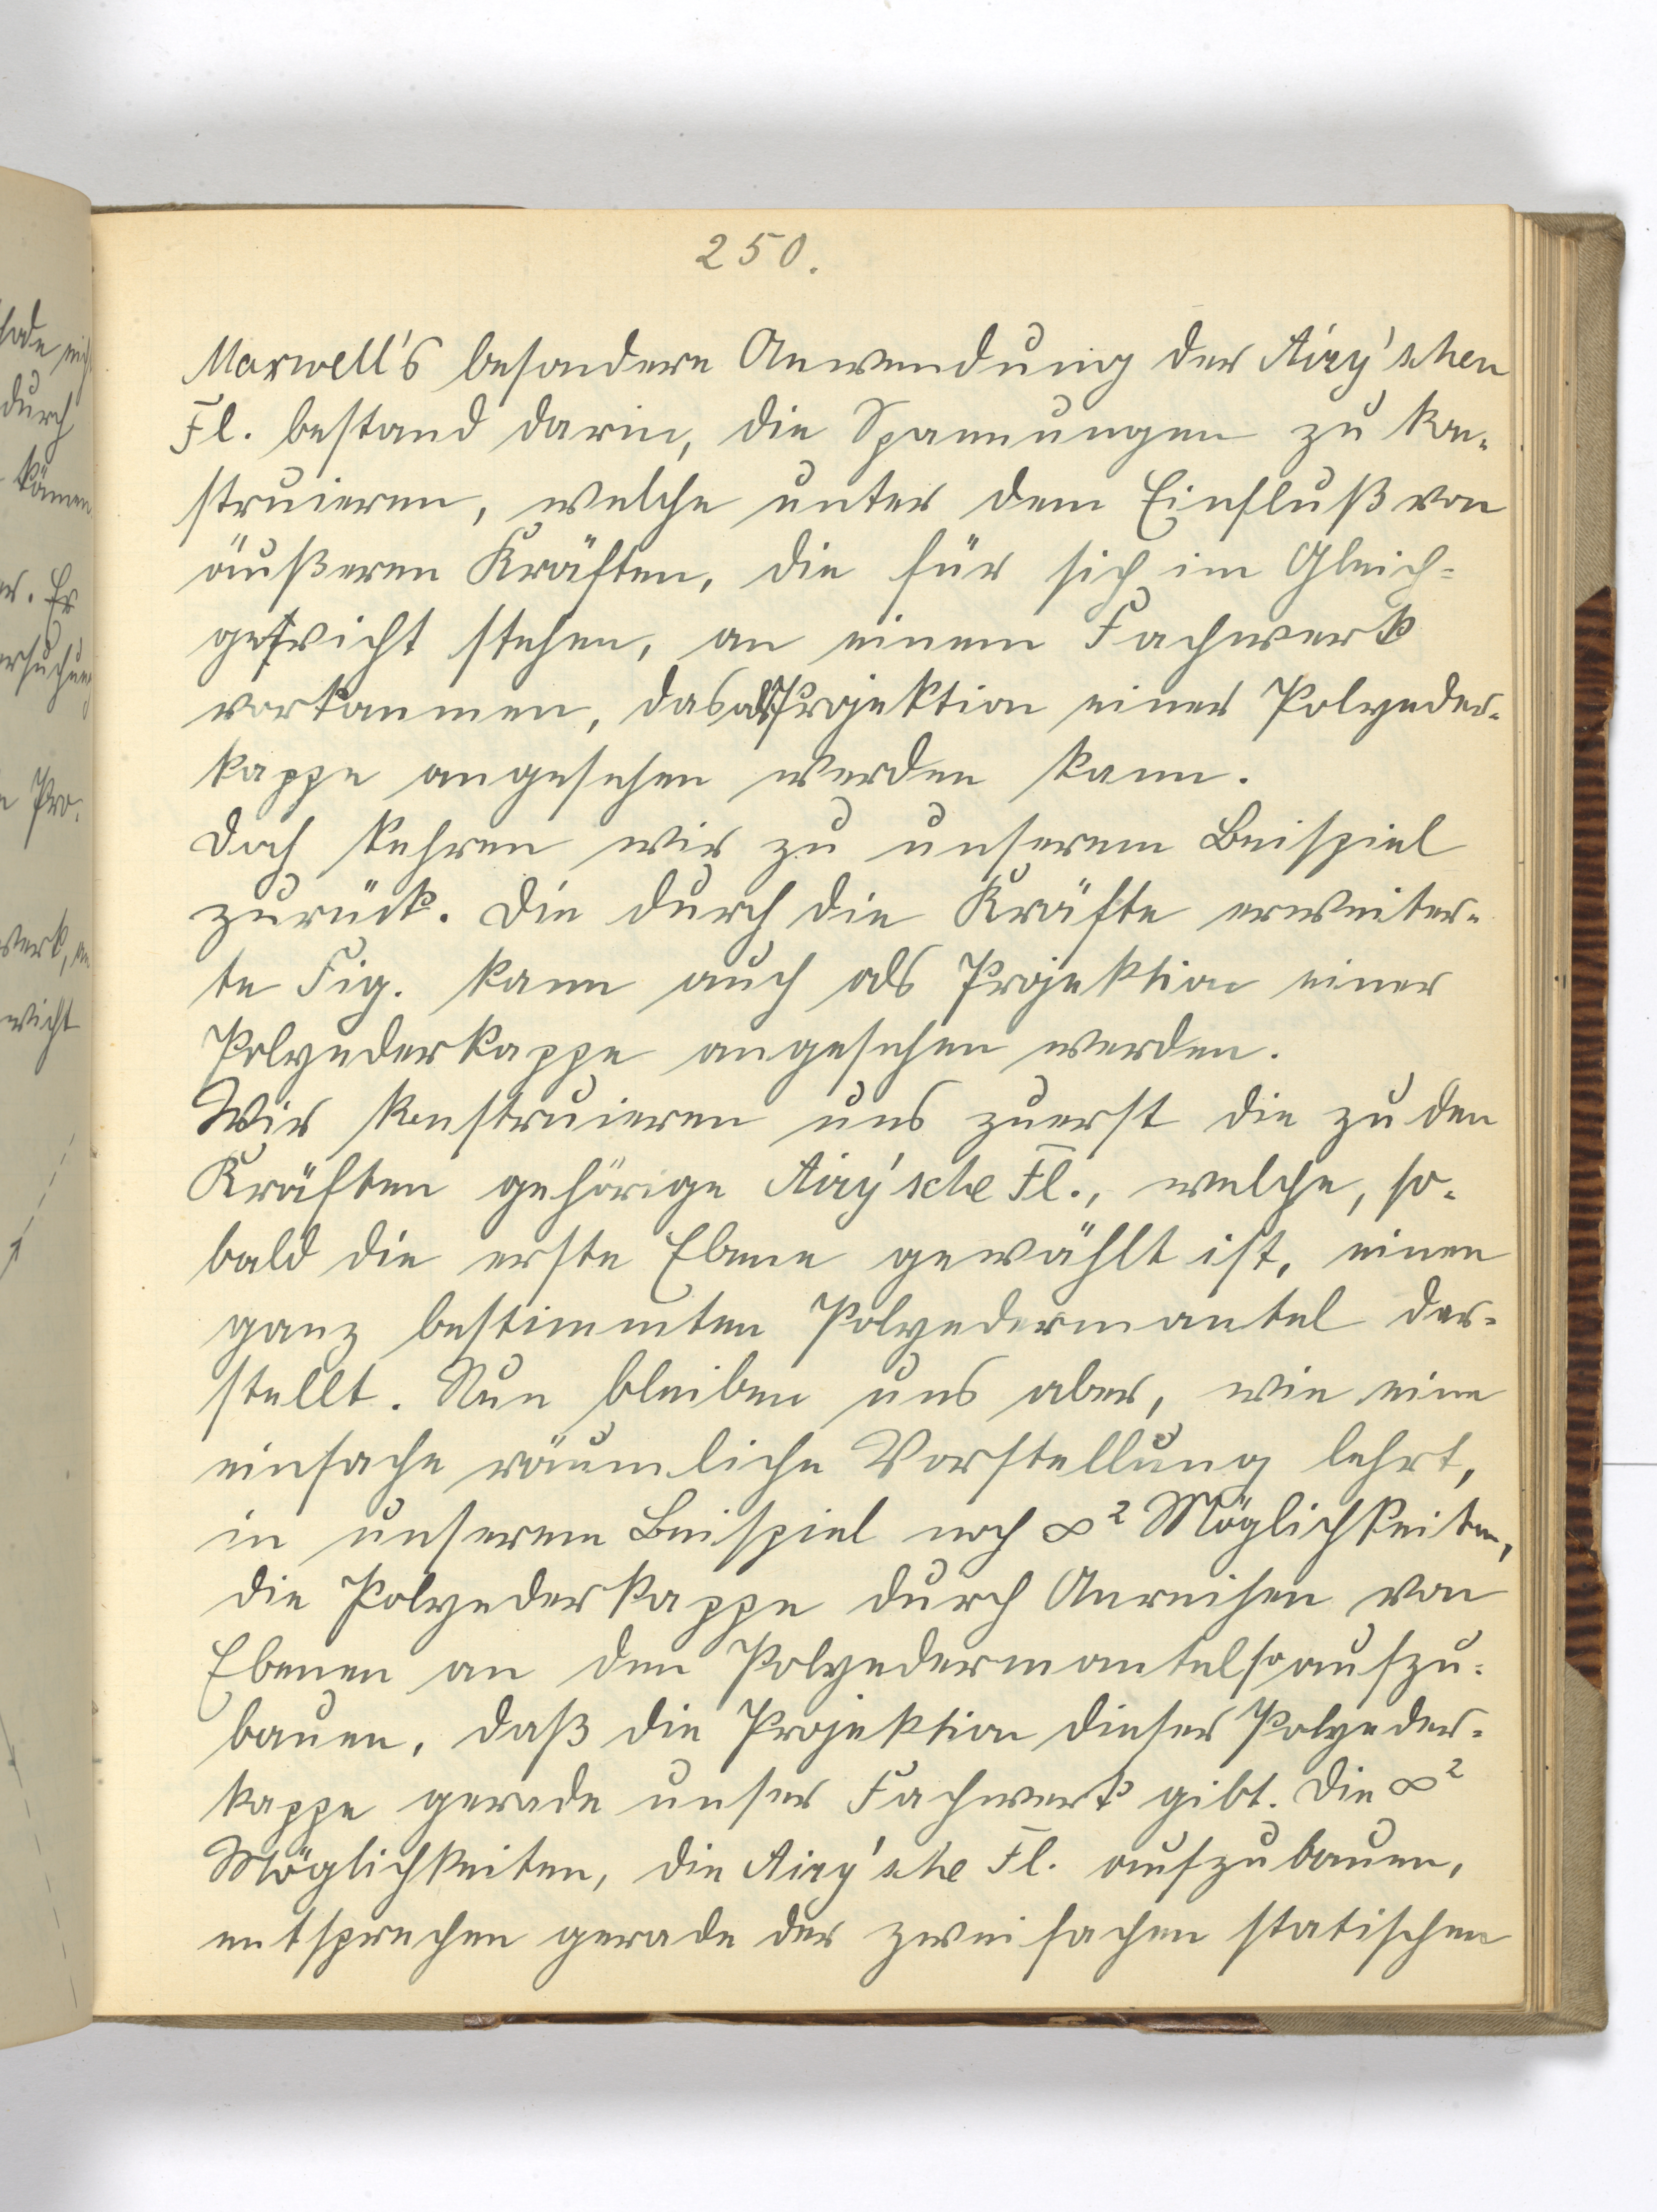 250.
Maxwell's besondere Anwendung der Airy'schen
Fl. bestand darin, die Spannungen zu kon-
struieren, welche unter dem Einfluß von
äußeren Kräften, die für sich im Gleich-
gewicht stehen, an einem Fachwerk
vorkommen, das als Projektion einer Polyeder-
kappe angesehen werden kann.
Doch kehren wir zu unserem Beispiel
zurück. Die durch die Kräfte erweiter-
te Fig. kann auch als Projektion einer
Polyederkappe angesehen werden.
Wir konstruieren uns zuerst die zu den
Kräften gehörige Airy'sche Fl., welche, so-
bald die erste Ebene gewählt ist, einen
ganz bestimmten Polyedermantel dar-
stellt. Nun bleiben uns aber, wie eine
einfache räumliche Vorstellung lehrt,
in unserem Beispiel noch ∞² Möglichkeiten,
die Polyederkappe durch Anreihen von
Ebenen an den Polyedermantel so aufzu-
bauen, daß die Projektion dieser Polyeder-
kappe gerade unser Fachwerk gibt. Die ∞²
Möglichkeiten, die Airy'sche Fl. aufzubauen,
entsprechen gerade der zweifachen statischen
durch
Er
Pro-
wicht